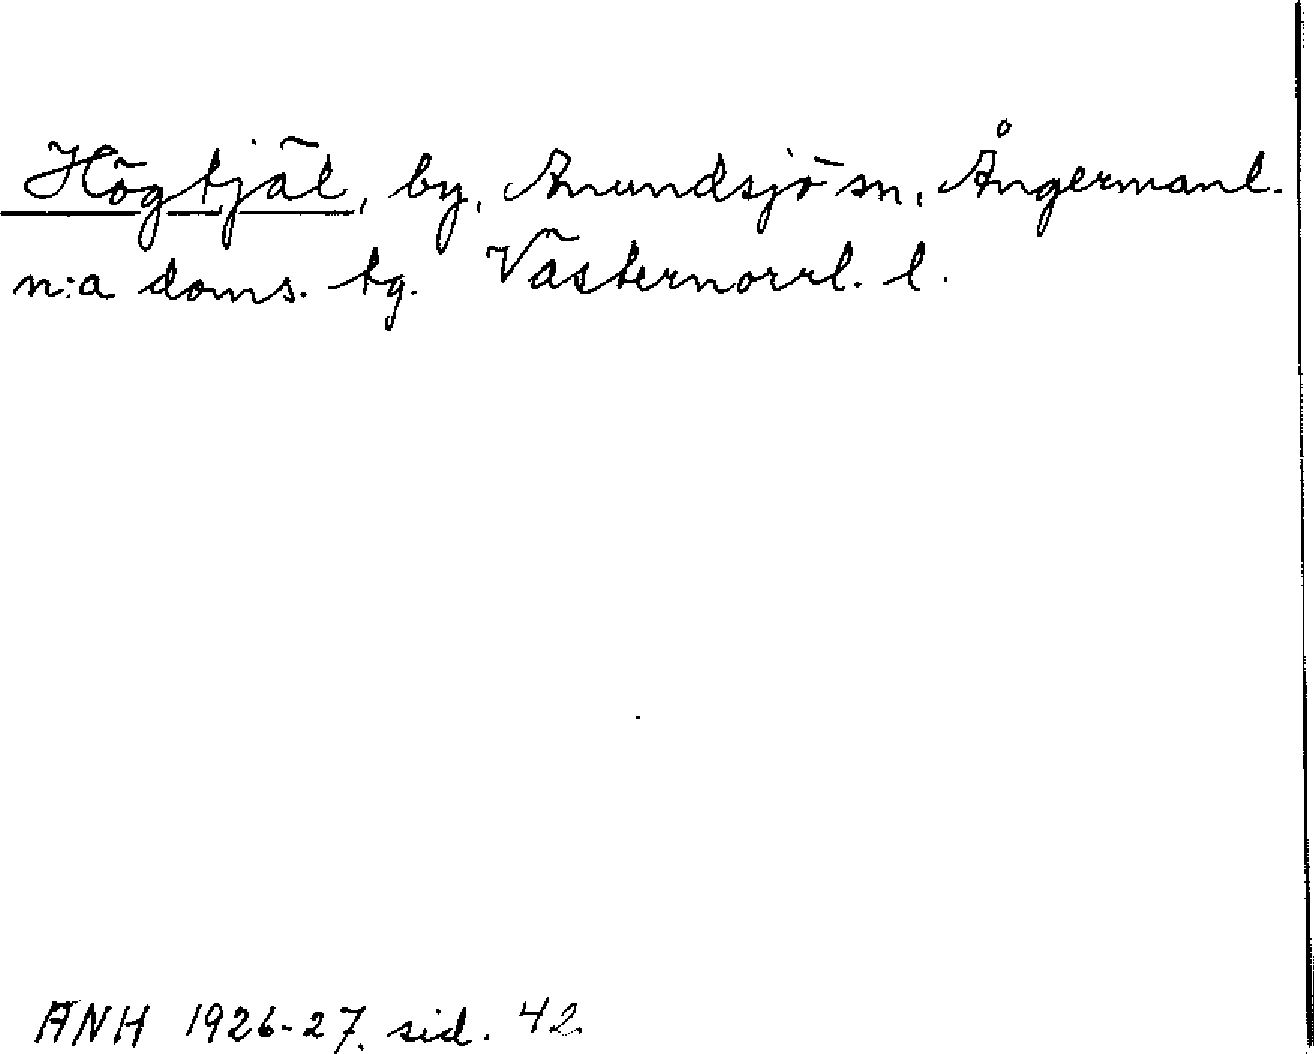 Högtjäl, by, Anundsjö sn, Ångermanl.
n:a doms. tg. Västernorrl. l.
ÄNH 1926-27. sid. 42